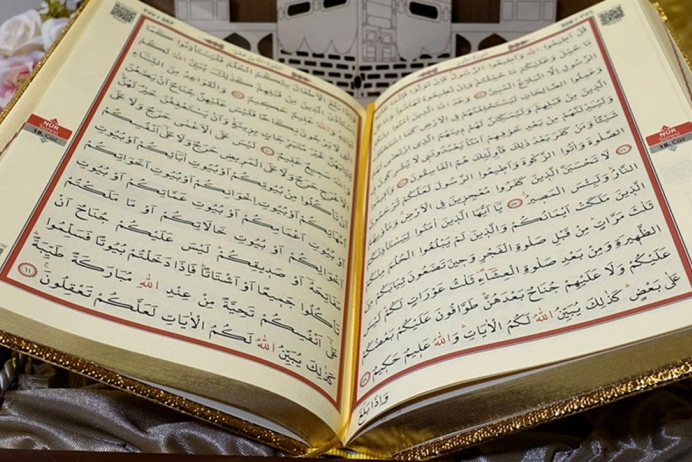 قُلْ اَطٖيعُوا اللّٰهَ وَاَطٖيعُوا الرَّسُولَ فَاِنْ تَوَلَّوْا فَاِنَّمَا عَلَيْهِ
مَا حُمِّلَ وَعَلَيْكُمْ مَا حُمِّلْتُمْ وَاِنْ تُطٖيعُوهُ تَهْتَدُوا وَمَا عَلَى
الرَّسُولِ اِلَّا الْبَلَاغُ الْمُبٖينُ ٥٤ وَعَدَ اللّٰهُ الَّذٖينَ اٰمَنُوا مِنْكُمْ
وَعَمِلُوا الصَّالِحَاتِ لَيَسْتَخْلِفَنَّهُمْ فِي الْاَرْضِ كَمَا اسْتَخْلَفَ
الَّذٖينَ مِنْ قَبْلِهِمْ وَلَيُمَكِّنَنَّ لَهُمْ دٖينَهُمُ الَّذِي ارْتَضٰى لَهُمْ
وَلَيُبَدِّلَنَّهُمْ مِنْ بَعْدِ خَوْفِهِمْ اَمْنًا يَعْبُدُونَنٖي لَا يُشْرِكُونَ بٖي
شَيْـًٔا وَمَنْ كَفَرَ بَعْدَ ذٰلِكَ فَاُولٰٓئِكَ هُمُ الْفَاسِقُونَ ٥٥ وَاَقٖيمُوا
الصَّلٰوةَ وَاٰتُوا الزَّكٰوةَ وَاَطٖيعُوا الرَّسُولَ لَعَلَّكُمْ تُرْحَمُونَ ٥٦
لَا تَحْسَبَنَّ الَّذٖينَ كَفَرُوا مُعْجِزٖينَ فِي الْاَرْضِ وَمَأْوٰيهُمُ
النَّارُ وَلَبِئْسَ الْمَصٖيرُ ٥٧ يَا اَيُّهَا الَّذٖينَ اٰمَنُوا لِيَسْتَأْذِنْكُمُ
الَّذٖينَ مَلَكَتْ اَيْمَانُكُمْ وَالَّذٖينَ لَمْ يَبْلُغُوا الْحُلُمَ مِنْكُمْ
ثَلٰثَ مَرَّاتٍ مِنْ قَبْلِ صَلٰوةِ الْفَجْرِ وَحٖينَ تَضَعُونَ ثِيَابَكُمْ مِنَ
الظَّهٖيرَةِ وَمِنْ بَعْدِ صَلٰوةِ الْعِشَاءِ ثَلٰثُ عَوْرَاتٍ لَكُمْ لَيْسَ
عَلَيْكُمْ وَلَا عَلَيْهِمْ جُنَاحٌ بَعْدَهُنَّ طَوَّافُونَ عَلَيْكُمْ بَعْضُكُمْ
عَلٰى بَعْضٍ كَذٰلِكَ يُبَيِّنُ اللّٰهُ لَكُمُ الْاٰيَاتِ وَاللّٰهُ عَلٖيمٌ حَكٖيمٌ ٥٨
وَاِذَا بَلَغَ
NUR
18. CÜZ
وَاِذَا بَلَغَ الْاَطْفَالُ مِنْكُمُ الْحُلُمَ فَلْيَسْتَأْذِنُوا كَمَا
اسْتَأْذَنَ الَّذٖينَ مِنْ قَبْلِهِمْ كَذٰلِكَ يُبَيِّنُ اللّٰهُ لَكُمْ
اٰيَاتِهٖ وَاللّٰهُ عَلٖيمٌ حَكٖيمٌ ٥٩ وَالْقَوَاعِدُ مِنَ النِّسَاءِ
الّٰتٖي لَا يَرْجُونَ نِكَاحًا فَلَيْسَ عَلَيْهِنَّ جُنَاحٌ اَنْ يَضَعْنَ
ثِيَابَهُنَّ غَيْرَ مُتَبَرِّجَاتٍ بِزٖينَةٍ وَاَنْ يَسْتَعْفِفْنَ خَيْرٌ لَهُنَّ
وَاللّٰهُ سَمٖيعٌ عَلٖيمٌ ٦٠ لَيْسَ عَلَى الْاَعْمٰى حَرَجٌ وَلَا عَلَى
الْاَعْرَجِ حَرَجٌ وَلَا عَلَى الْمَرٖيضِ حَرَجٌ وَلَا عَلٰى اَنْفُسِكُمْ
اَنْ تَأْكُلُوا مِنْ بُيُوتِكُمْ اَوْ بُيُوتِ اٰبَائِكُمْ اَوْ بُيُوتِ
اُمَّهَاتِكُمْ اَوْ بُيُوتِ اِخْوَانِكُمْ اَوْ بُيُوتِ اَخَوَاتِكُمْ
اَوْ بُيُوتِ اَعْمَامِكُمْ اَوْ بُيُوتِ عَمَّاتِكُمْ اَوْ بُيُوتِ
اَخْوَالِكُمْ اَوْ بُيُوتِ خَالَاتِكُمْ اَوْ مَا مَلَكْتُمْ
مَفَاتِحَهُ اَوْ صَدٖيقِكُمْ لَيْسَ عَلَيْكُمْ جُنَاحٌ اَنْ
تَأْكُلُوا جَمٖيعًا اَوْ اَشْتَاتًا فَاِذَا دَخَلْتُمْ بُيُوتًا فَسَلِّمُوا
عَلٰى اَنْفُسِكُمْ تَحِيَّةً مِنْ عِنْدِ اللّٰهِ مُبَارَكَةً طَيِّبَةً
كَذٰلِكَ يُبَيِّنُ اللّٰهُ لَكُمُ الْاٰيَاتِ لَعَلَّكُمْ تَعْقِلُونَ ٦١
NUR
18. CÜZ